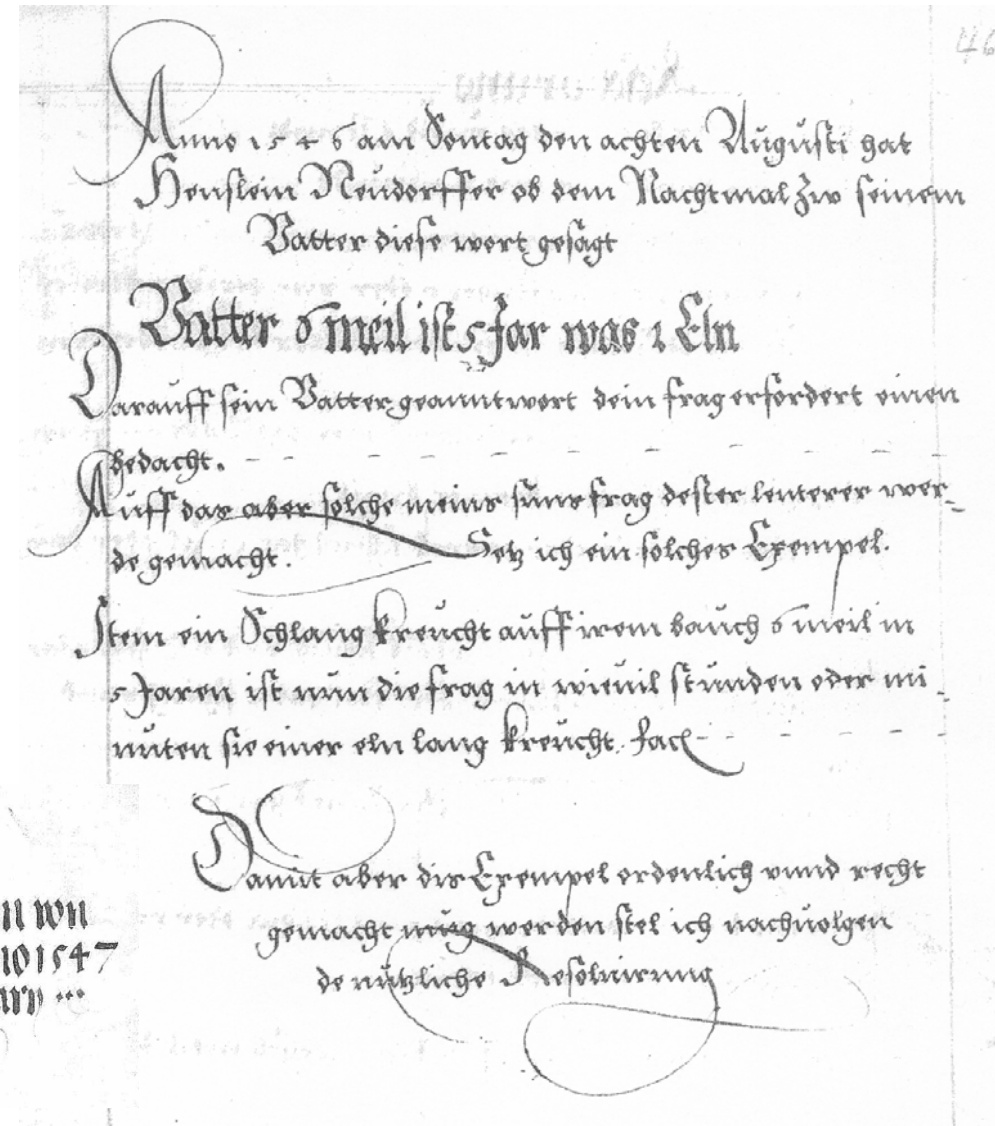 46
Anno 1546 am Sontag den achten Augusti hat
Henslein Neudorffer ob dem Nachtmal zw seinem
Vatter diese wort gesagt
Vatter 6 meil ist 5 Jar was 1 Eln
Darauff sein Vatter geanntwort dein frag erfordert einen
bedacht.
Auff das aber solche meins suns frag dester leuterer wer-
de gemacht. Setz ich ein solches Exempel.
Item ein Schlang kreucht auff irem bauch 6 meil in
5 Jaren ist nun die frag in wieuil stunden oder mi-
nuten sie einer eln lang kreucht. facl
Damit aber dis Exempel ordenlich vnnd recht
gemacht mug werden stel ich nachuolgen
de nutzliche Resoluirung
1547